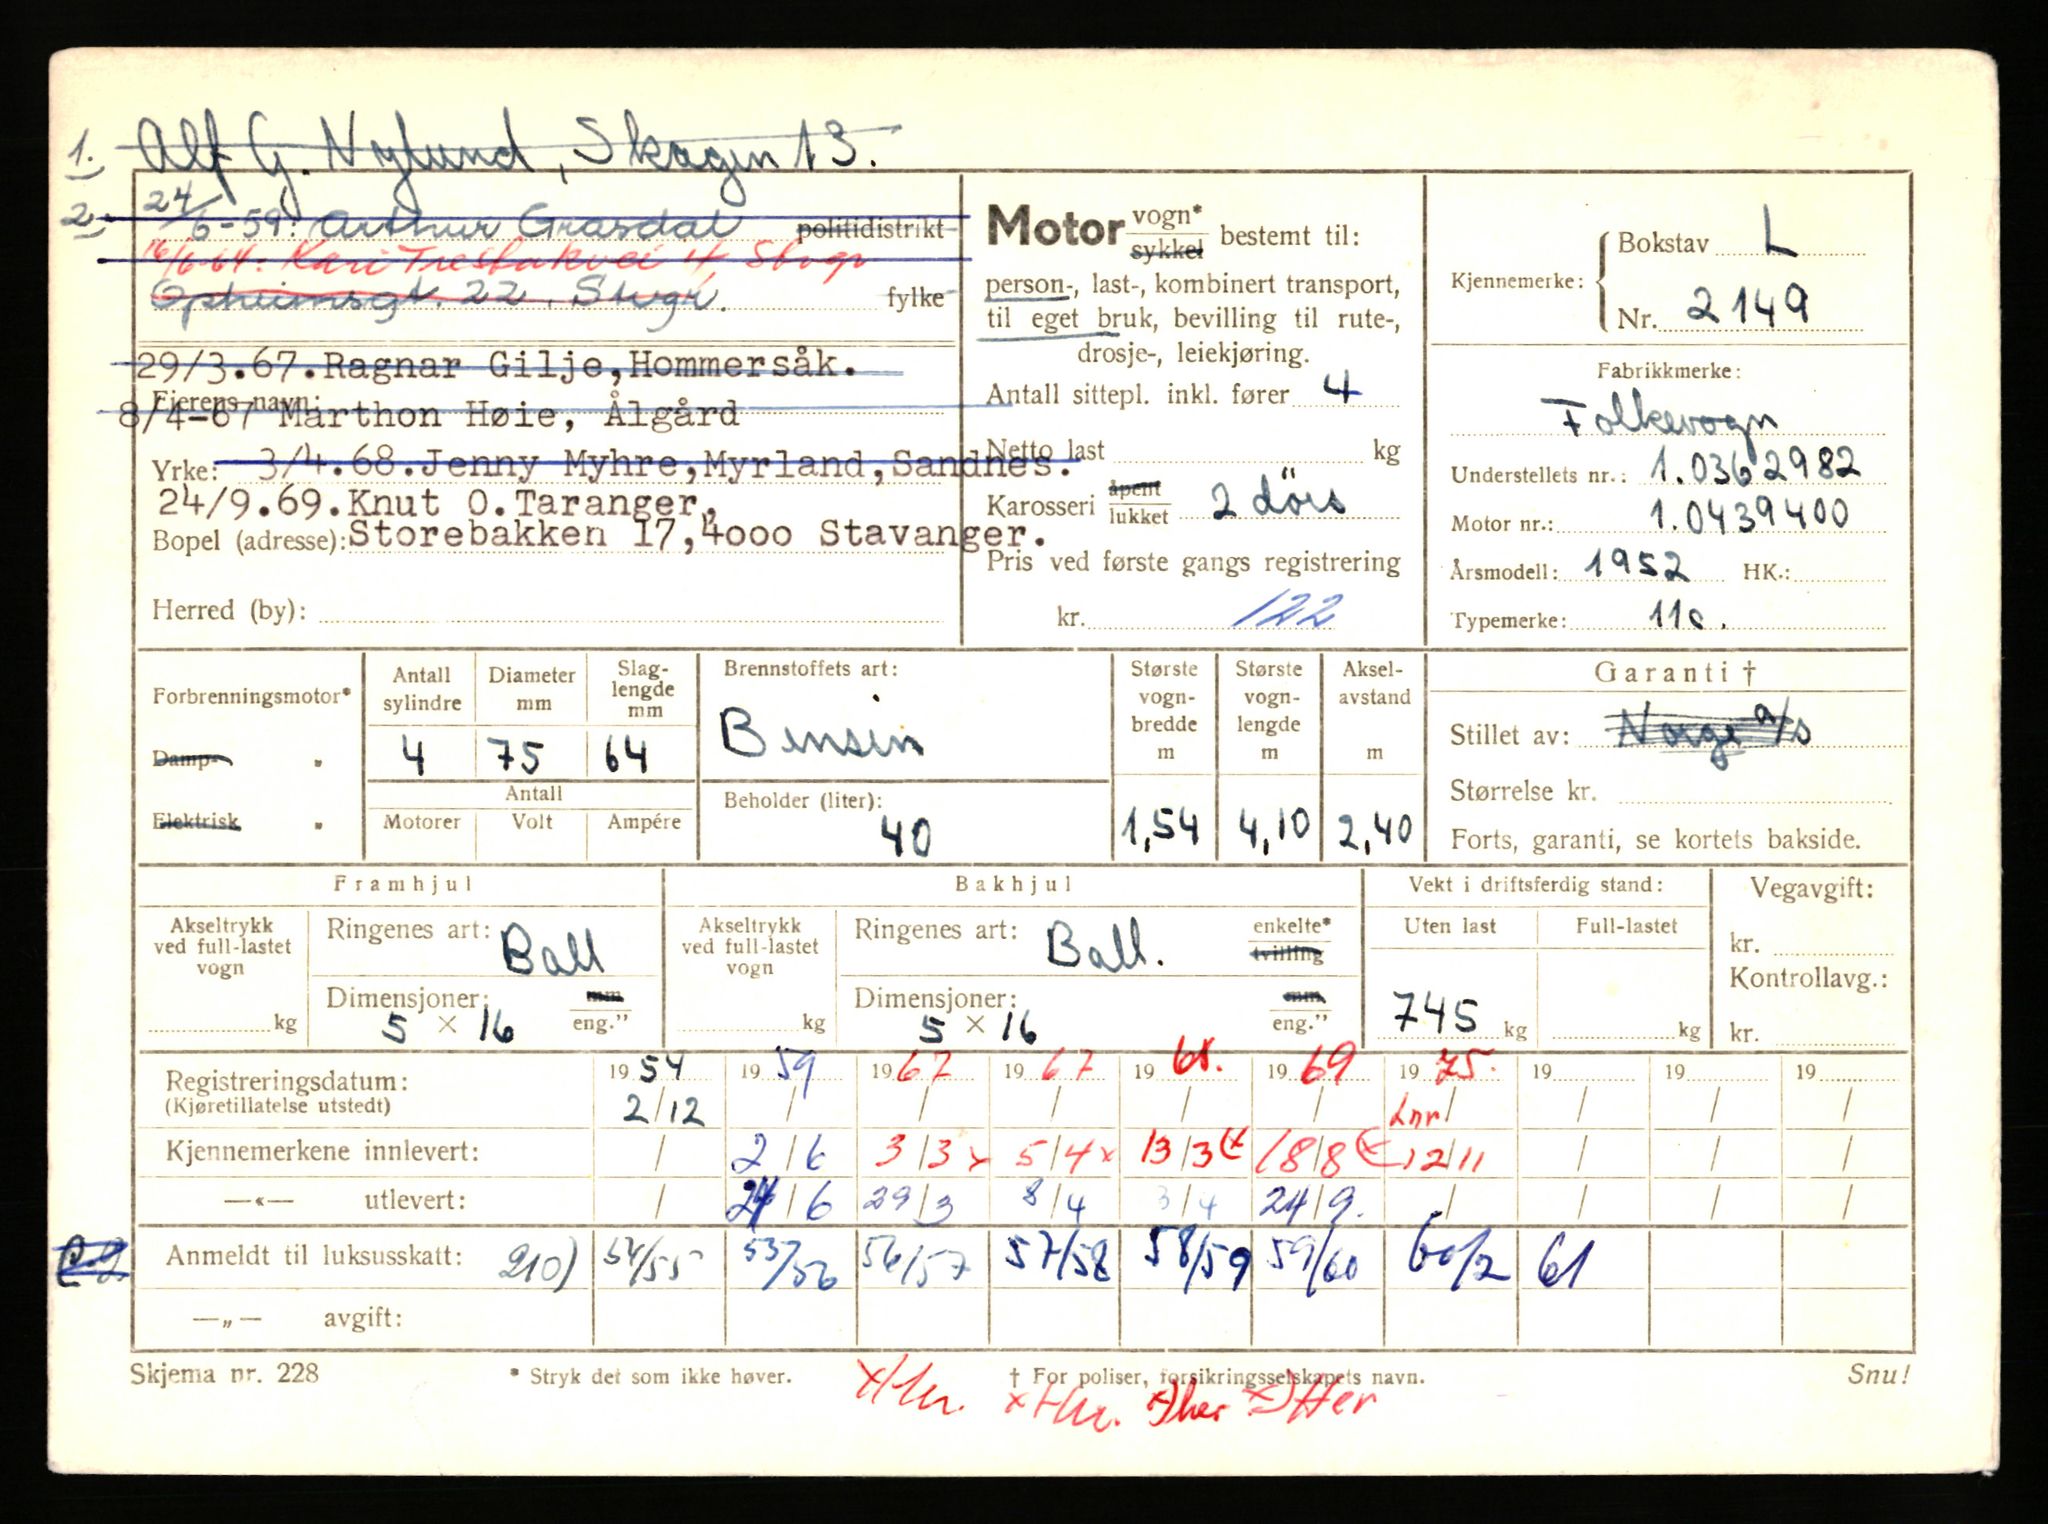 1. Alf G. Nylund, Skagen 13.
2. 24/6-59: Arthur Grasdal politidistrikt
16/6-64: Kari Trestakvei 4, Stvgr
Opheimsgt. 22, Stvgr. fylke
29/3.67. Ragnar Gilje, Hommersåk.
Eierens navn:
8/4-67 Marthon Høie, Ålgård
Yrke: 3/4.68. Jenny Myhre, Myrland, Sandnes.
24/9.69. Knut O. Taranger,
Bopel (adresse): Storebakken 17, 4000 Stavanger.
Herred (by):
Motor vogn* sykkel bestemt til:
person-, last-, kombinert transport,
til eget bruk, bevilling til rute-,
drosje-, leiekjøring.
Antall sittepl. inkl. fører 4
Netto last kg
Karosseri åpent lukket 2 dörs
Pris ved første gangs registrering
kr. 122
Kjennemerke: Bokstav L
Nr. 2149
Fabrikkmerke:
Folkevogn
Understellets nr.: 1.0362982
Motor nr.: 1.0439400
Årsmodell: 1952 HK.:
Typemerke: 11c.
Forbrenningsmotor*
Damp- "
Elektrisk "
Antall sylindre 4
Diameter mm 75
Slag-lengde mm 64
Antall
Motorer Volt Ampére
Brennstoffets art:
Bensin
Beholder (liter):
40
Største vogn-bredde m 1,54
Største vogn-lengde m 4,10
Aksel-avstand m 2,40
Garanti †
Stillet av: Norge a/s
Størrelse kr.
Forts, garanti, se kortets bakside.
Framhjul
Akseltrykk ved full-lastet vogn kg
Ringenes art: Ball
Dimensjoner: mm
5 × 16 eng."
Bakhjul
Akseltrykk ved full-lastet vogn kg
Ringenes art: Ball. enkelte* tvilling
Dimensjoner: mm
5 × 16 eng."
Vekt i driftsferdig stand:
Uten last Full-lastet
745 kg kg
Vegavgift:
kr.
Kontrollavg.:
kr.
Registreringsdatum: 1954 1959 1967 1967 1968. 1969 1975. 19 19 19
(Kjøretillatelse utstedt) 2/12 / / / / / Lnr / / / /
Kjennemerkene innlevert: / 2/6 3/3 x 5/4 x 13/3 (x 18/8 (x 12/11 / / /
—«— utlevert: / 24/6 29/3 8/4 3/4 24/9. / / / /
Anmeldt til luksusskatt: 210) 54/55 55/56 56/57 57/58 58/59 59/60 60/2 61
—„— avgift:
Skjema nr. 228 * Stryk det som ikke høver. † For poliser, forsikringsselskapets navn. Snu!
x) Her